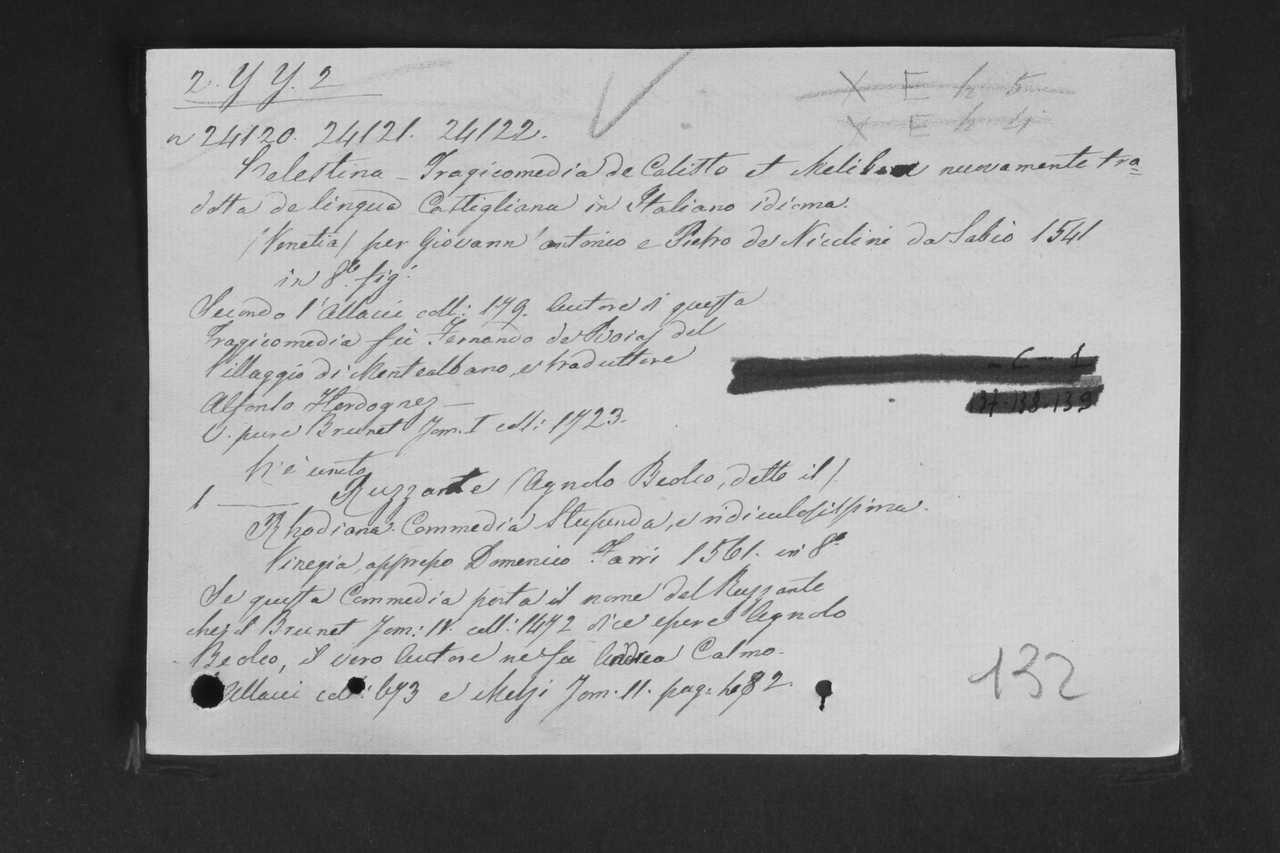 2. Y Y. 2
X E h 5
X E h 4
n 24120. 24121. 24122.
Celestina - Tragicomedia de Calisto et Melibea nuovamente tra=
dotta de lingua Castigliana in Italiano idioma.
(Venetia) per Giovann' antonico e Pietro de Nicolini da Sabio 1541
in 8.º fig:
Secondo l'Allacci coll: 179. Autore di questa
Tragicomedia fù Fernando de Roias del
Villaggio di Montealbano, e traduttore
Alfonso Hordognez —
V. pure Brunet Tom. I coll: 1723.
C I
137.138.139
V'è unito
1 — Ruzzante (Agnolo Beolco, detto il)
Rhodiana Commedia Stupenda, e ridiculosissima.
Vinegia, appresso Domenico Farri 1561. in 8.º
Se questa Commedia porta il nome del Ruzzante
che il Brunet Tom: IV. coll: 1472 dice essere Agnolo
Beolco, il vero Autore ne fu Andrea Calmo.
Allacci coll: 673 e Melzi Tom. II. pag: 482.
132